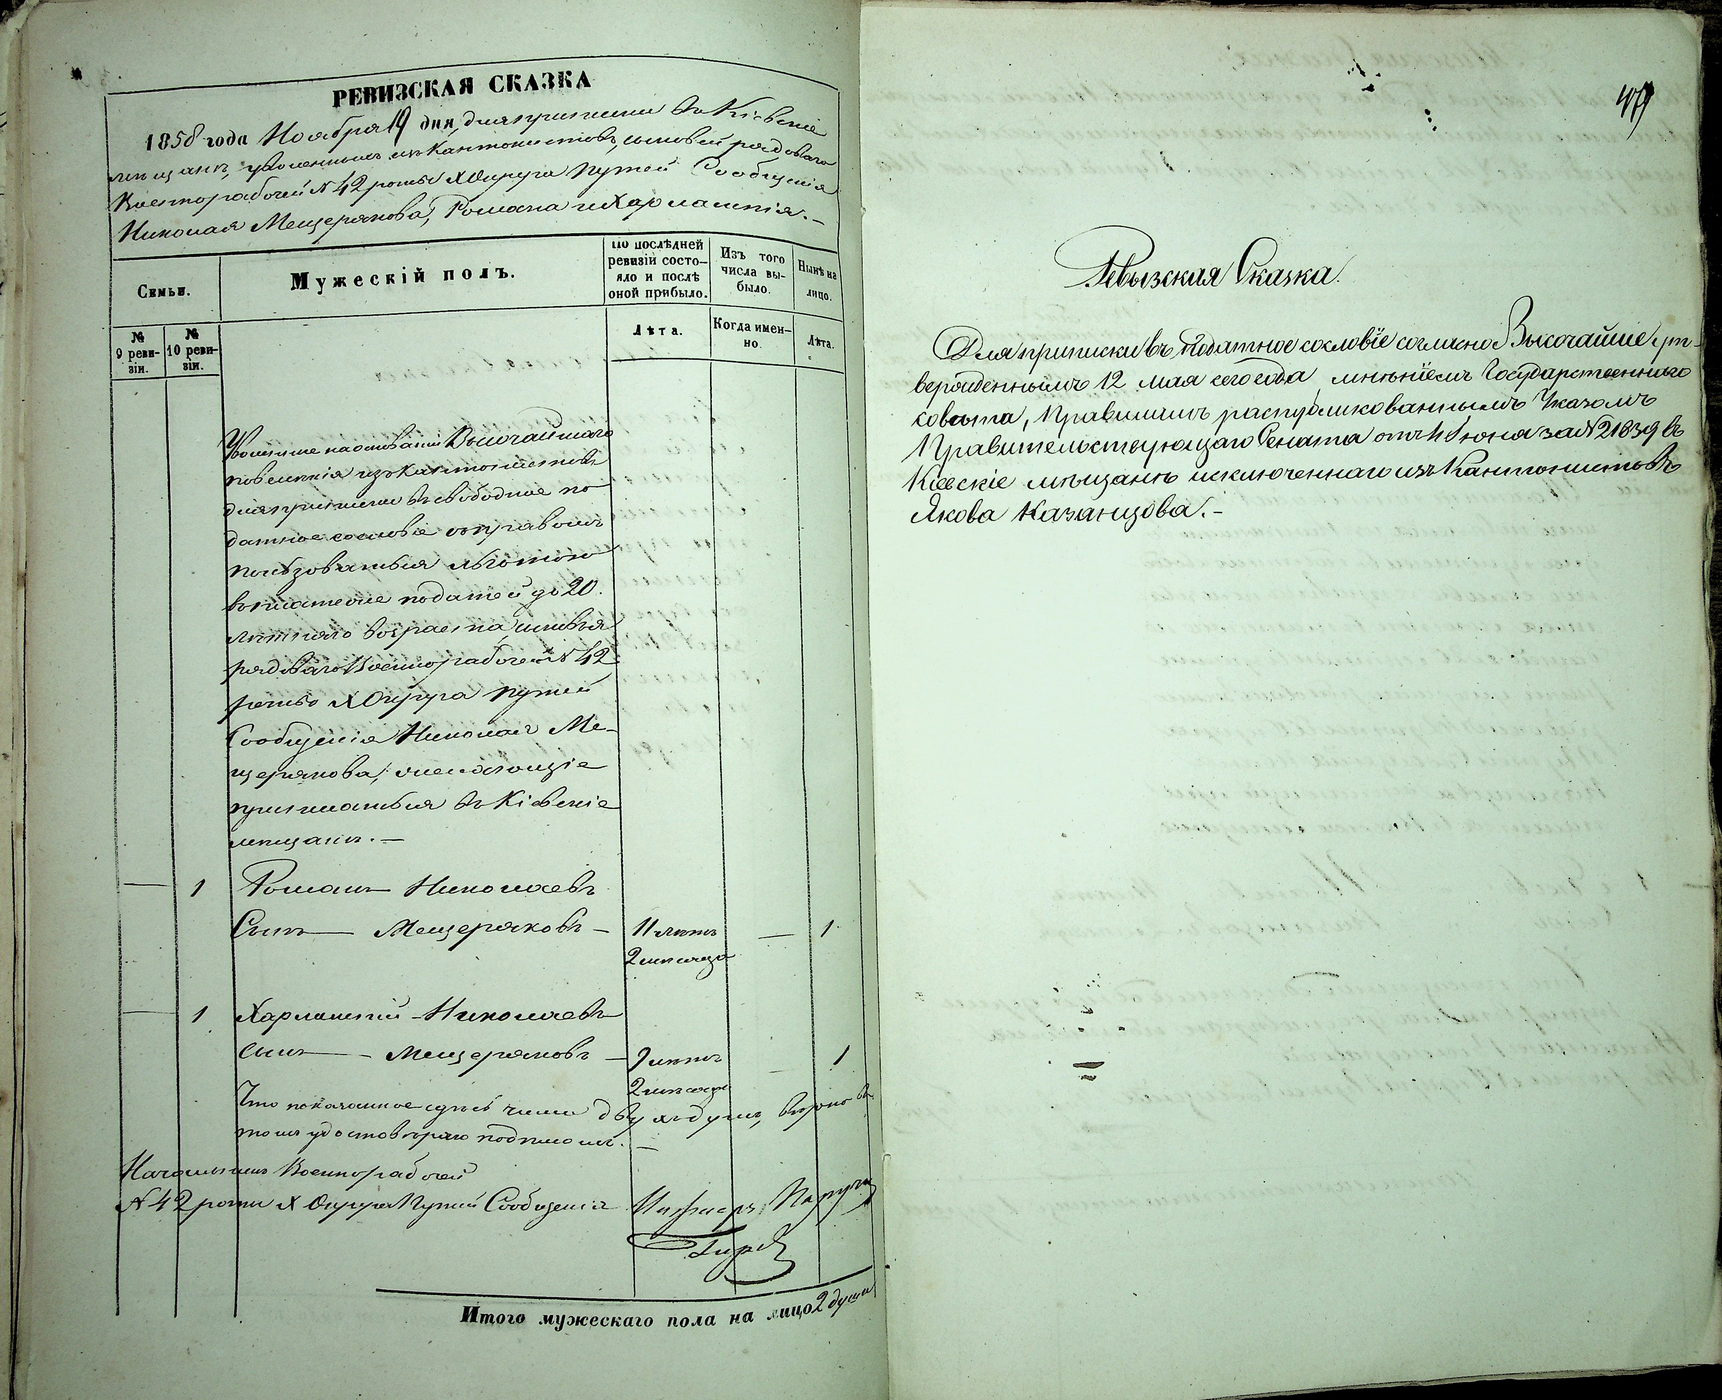 РЕВИЗСКАЯ СКАЗКА
1858 года Ноября 19 дня, для приписки въ Кіевскіе
мѣщане, уволенныхъ изъ Кантонистовъ, сыновей рядоваго
Военнорабочей № 42 роты X Округа Путей Сообщенія
Николая Мещерякова, Романа и Харлампія. —
Семьи.
Мужескій полъ.
По послѣдней ревизіи состояло и послѣ оной прибыло.
Изъ того числа выбыло.
Нынѣ на лицо.
№ 9 ревизіи.
№ 10 ревизіи.
Лѣта.
Когда именно.
Лѣта.
Уволенные на основаніи Высочайшаго
повелѣнія изъ кантонистовъ
для приписки въ свободное по-
датное сословіе съ правомъ
пользоваться льготою
въ платеже податей до 20.
лѣтняго возраста, сыновья
рядоваго Военнорабочей № 42
роты X Округа путей
Сообщенія Николая Ме-
щерякова, желающіе
приписаться въ Кіевскіе
мѣщане. —
— 1 Романъ Николаевъ
Сынъ — Мещеряковъ — 11 лѣтъ — 1
2 мѣсяца
— 1 Харлампій Николаевъ
сынъ — Мещеряковъ — 9 лѣтъ 1
2 мѣсяца
Что показанное здѣсь число двухъ душъ, вѣрно въ
томъ удостовѣряю подписомъ. —
Начальникъ Военнорабочей
№ 42 роты X Округа Путей Сообщенія Инженеръ, Поручи
Итого мужескаго пола на лицо 2 души
Ревызская Сказка.
Для приписки въ податное сословіе согласно Высочайше ут-
вержденнымъ 12 мая сего года мнѣніемъ Государственнаго
совѣта, Правиламъ распубликованнымъ Указомъ
Правительствующаго Сената отъ 4 Іюня за № 21839 въ
Кіевскіе мѣщане исключеннаго изъ Кантонистовъ
Якова Казанцова. —